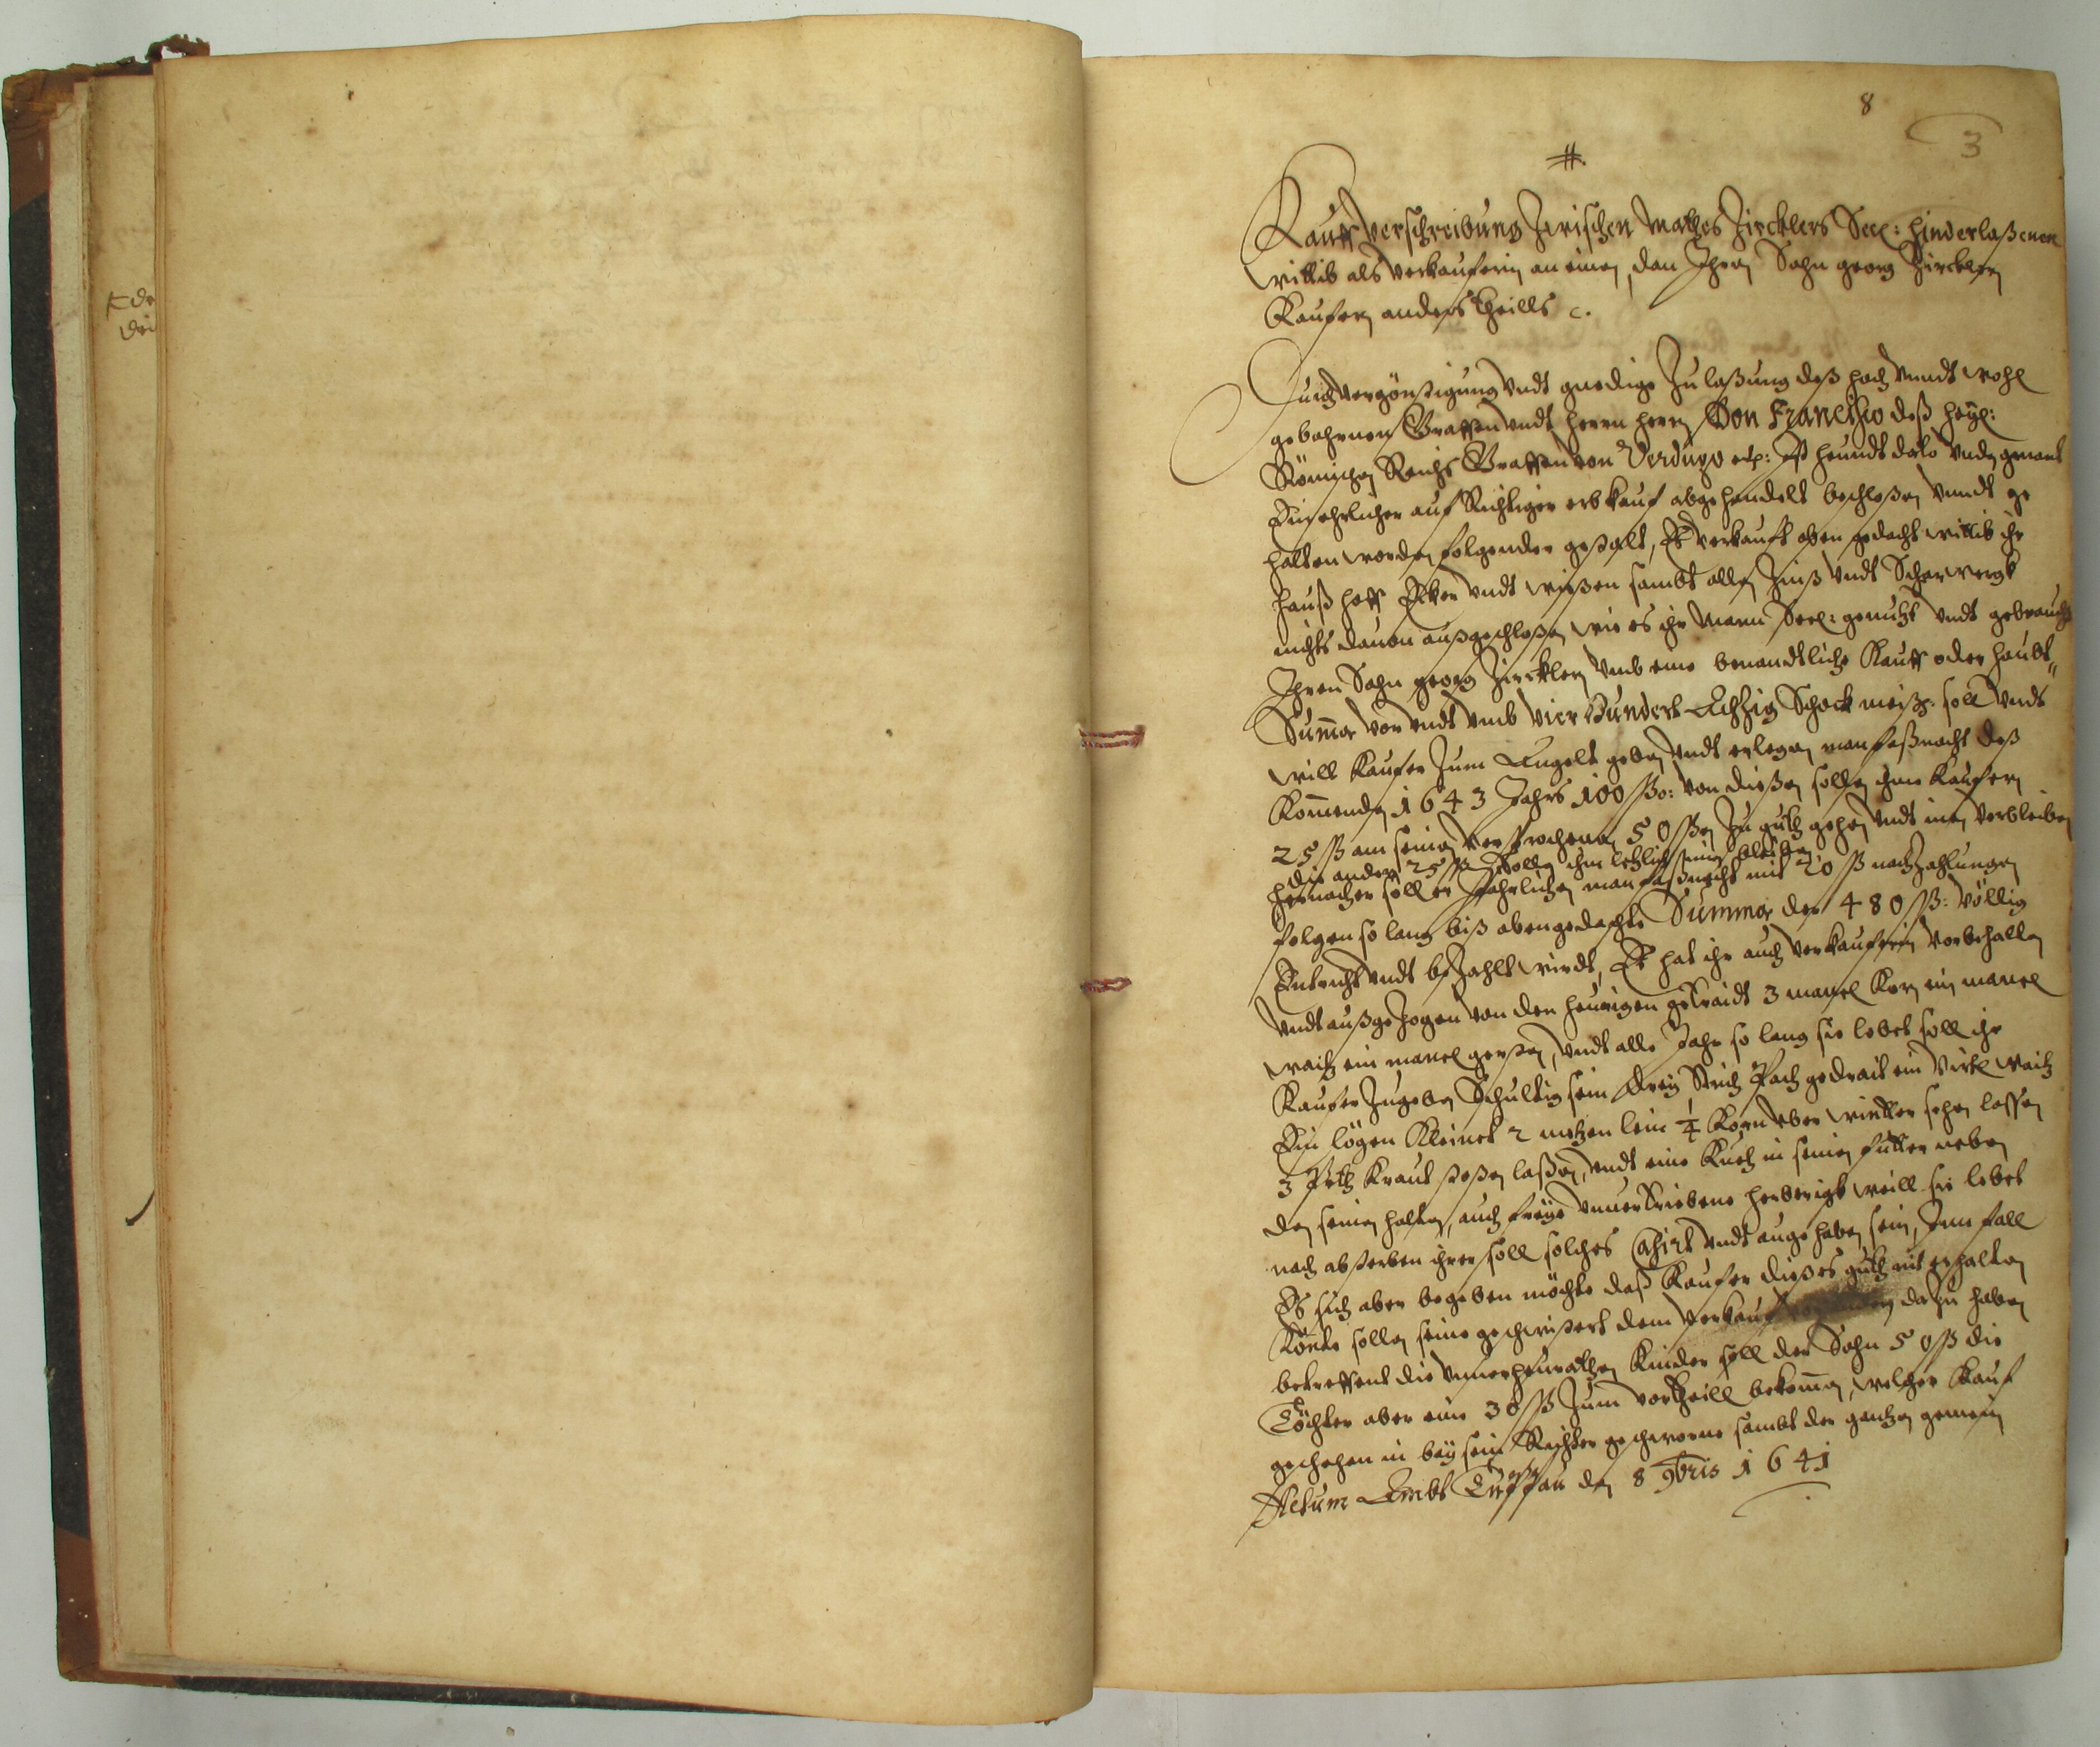 8
3
#.
Kauff verschreibung Zwischen Mathes Zircklers Seel: hinderlaßenen
wittib als verkauferin an einen, dan Ihren Sohn georg Zircklern
Kaufern anders theills c.
Durch vergönstigung undt gnedige Zulaßung deß hoch unndt wohl
gebohrnen Graffen undt herrn herrn Don Francisco deß heyl:
Römischen Reichs Graffen von Verdugo etc: Ist heundt dato unden genant
Ein ehrlicher auf Richtiger erbkauf abgehandelt beschloßen unndt ge
halten worden folgender gestalt, Es verkauft oben gedacht wittib ihr
Hauß hoff Ecker undt wießen sambt allen Zinß undt Scharwergk
nichts davon außgeschloßen wie es ihr Mann Seel: genutzt undt gebraucht
Ihren Sohn georg Zircklern umb eine benandtliche Kauff oder haubt"
Summa vor undt umb Vierhundert Achtzig Schock meiß: soll undt
will Kaufer Zum Angelt geben undt erlegen man faßnacht deß
Kommenden 1643 Jahrs 100 ßo: von dießen sollen ihme Kaufern
25 ß an seinen versprochenen 50 ßen Zu guth gehen undt innen verbleiben
die andern 25 ß sollen ihm letzlich innen bleiben
hernacher soll er Jahrlichen man faßnacht mit 20 ß nachzahlungen
folgen so lang biß obengedachte Summa der 480 ß: völlig
Entricht undt bezahlt wirdt, Es hat ihr auch verkauferin vorbehalten
undt außgezogen von den heurigen getraidt 3 manel Korn ein manel
waitz ein manel gersten, undt alle Jahr so lang sie lebet soll ihr
Kaufer Zugeben Schultig sein drey Strich Pach gedrait ein Virtl waitz
Ein lögen Kleinet 2 metzen lein ¼ Korn uber winter sehen lassen
3 Peth Kraut stoßen laßen, undt eine Kuch in seinen futter neben
den seinen halten, auch freye unvertriebene herberigk weill sie lebet
nach absterben ihrer soll solches Cahirt undt aufgehaben sein, Im fall
Es sich aber begeben möchte daß Kaufer dießes guth nit erhalten
Könte sollen seine geschwistert dem dazu haben
betreffent die unverheurathen Kinder soll der Sohn 50 ß die
Töchter aber eine 30 ß Zum vortheill bekommen, welcher Kauf
geschehen in beysein Richter geschworne sambt der gantzen gemein
Actum Ambt den 8 9bris 1641